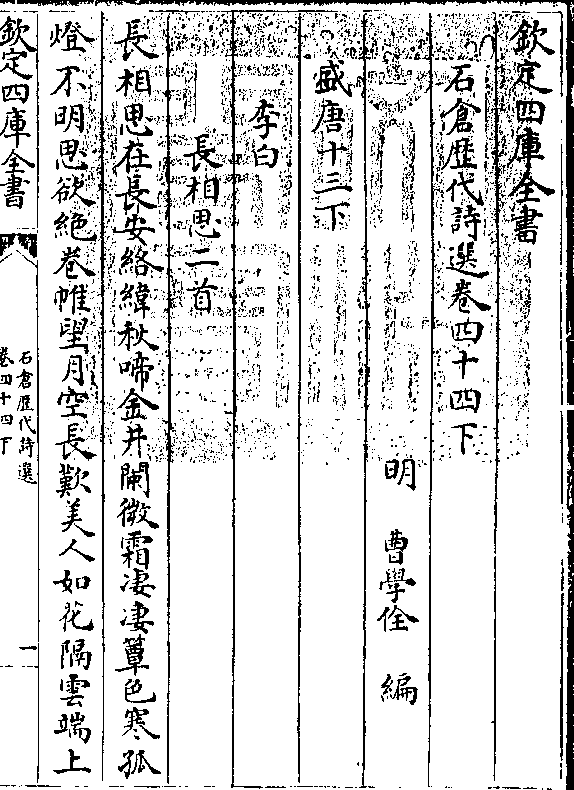 欽定四庫全書
石倉歴代詩選卷四十四下
明 曹學佺 編
盛唐十三下
李白
長相思二首
長相思在長安絡緯秋啼金井闌微霜淒淒簟色寒孤
燈不明思欲絶卷帷望月空長歎美人如花隔雲端上
欽定四庫全書
石倉歴代詩選
卷四十四下
一